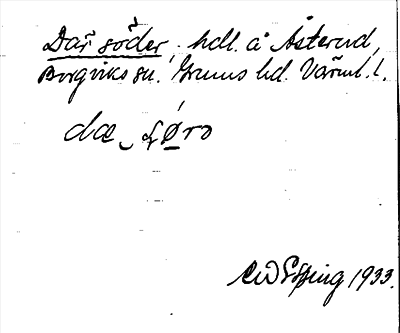 Där söder, hdl. å Åsterud,
Borgviks sn. Grums hd. Värml. l.
dæ‿sǿ̱rə
1933.